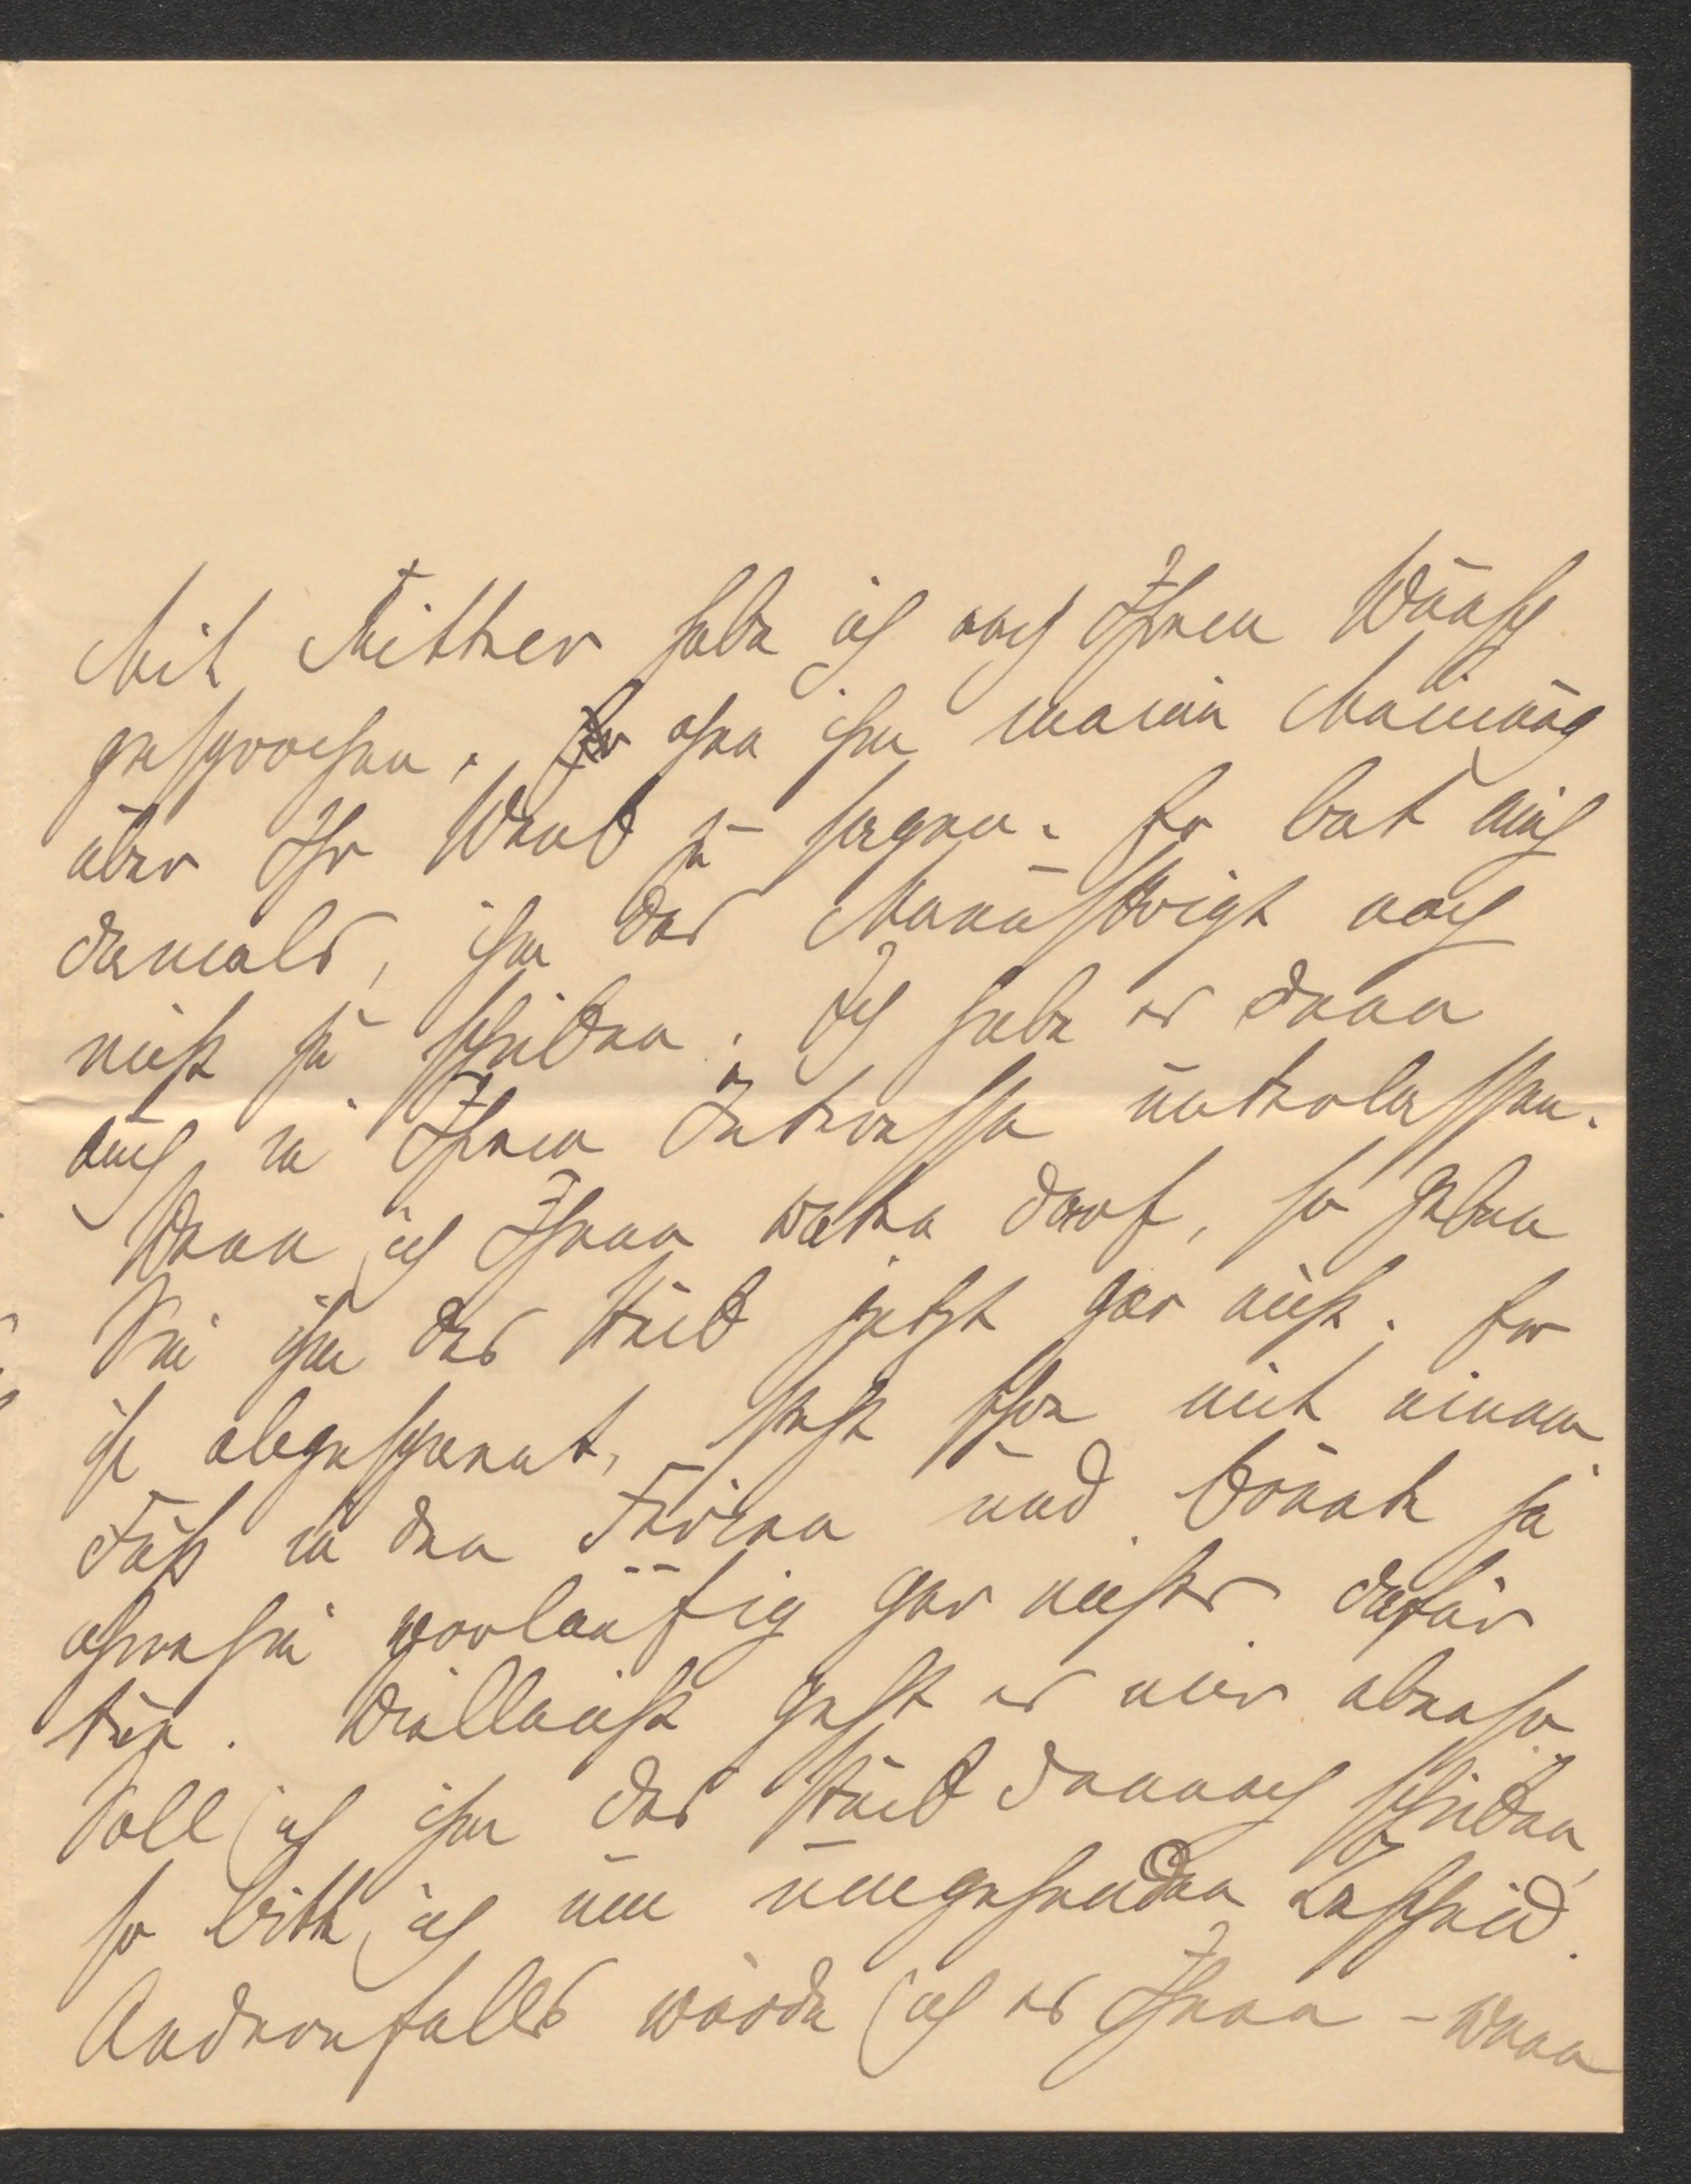 Mit Rittner habe ich nach Ihrem Wunsch
gesprochen. Er ohne ihm meine Meinung
über Ihr Werk zu sagen. Er bat mich
damals, ihm das Manuskript noch
nicht zu schicken. Ich habe es dann
auch in Ihrem Interesse unterlassen.
Wenn ich Ihnen raten darf, so geben
Sie ihm das Stück jetzt gar nicht. Er
ist abgespannt, steht schon mit einem
Fuß in den Ferien und könnte ja
ohnehin vorläufig gar nichts dafür
tun. Vielleicht geht es mir ebenso
Soll ich ihm das Stück dennoch schicken,
so bitte ich um umgehenden Bescheid.
Andernfalls würde ich es Ihnen – wenn